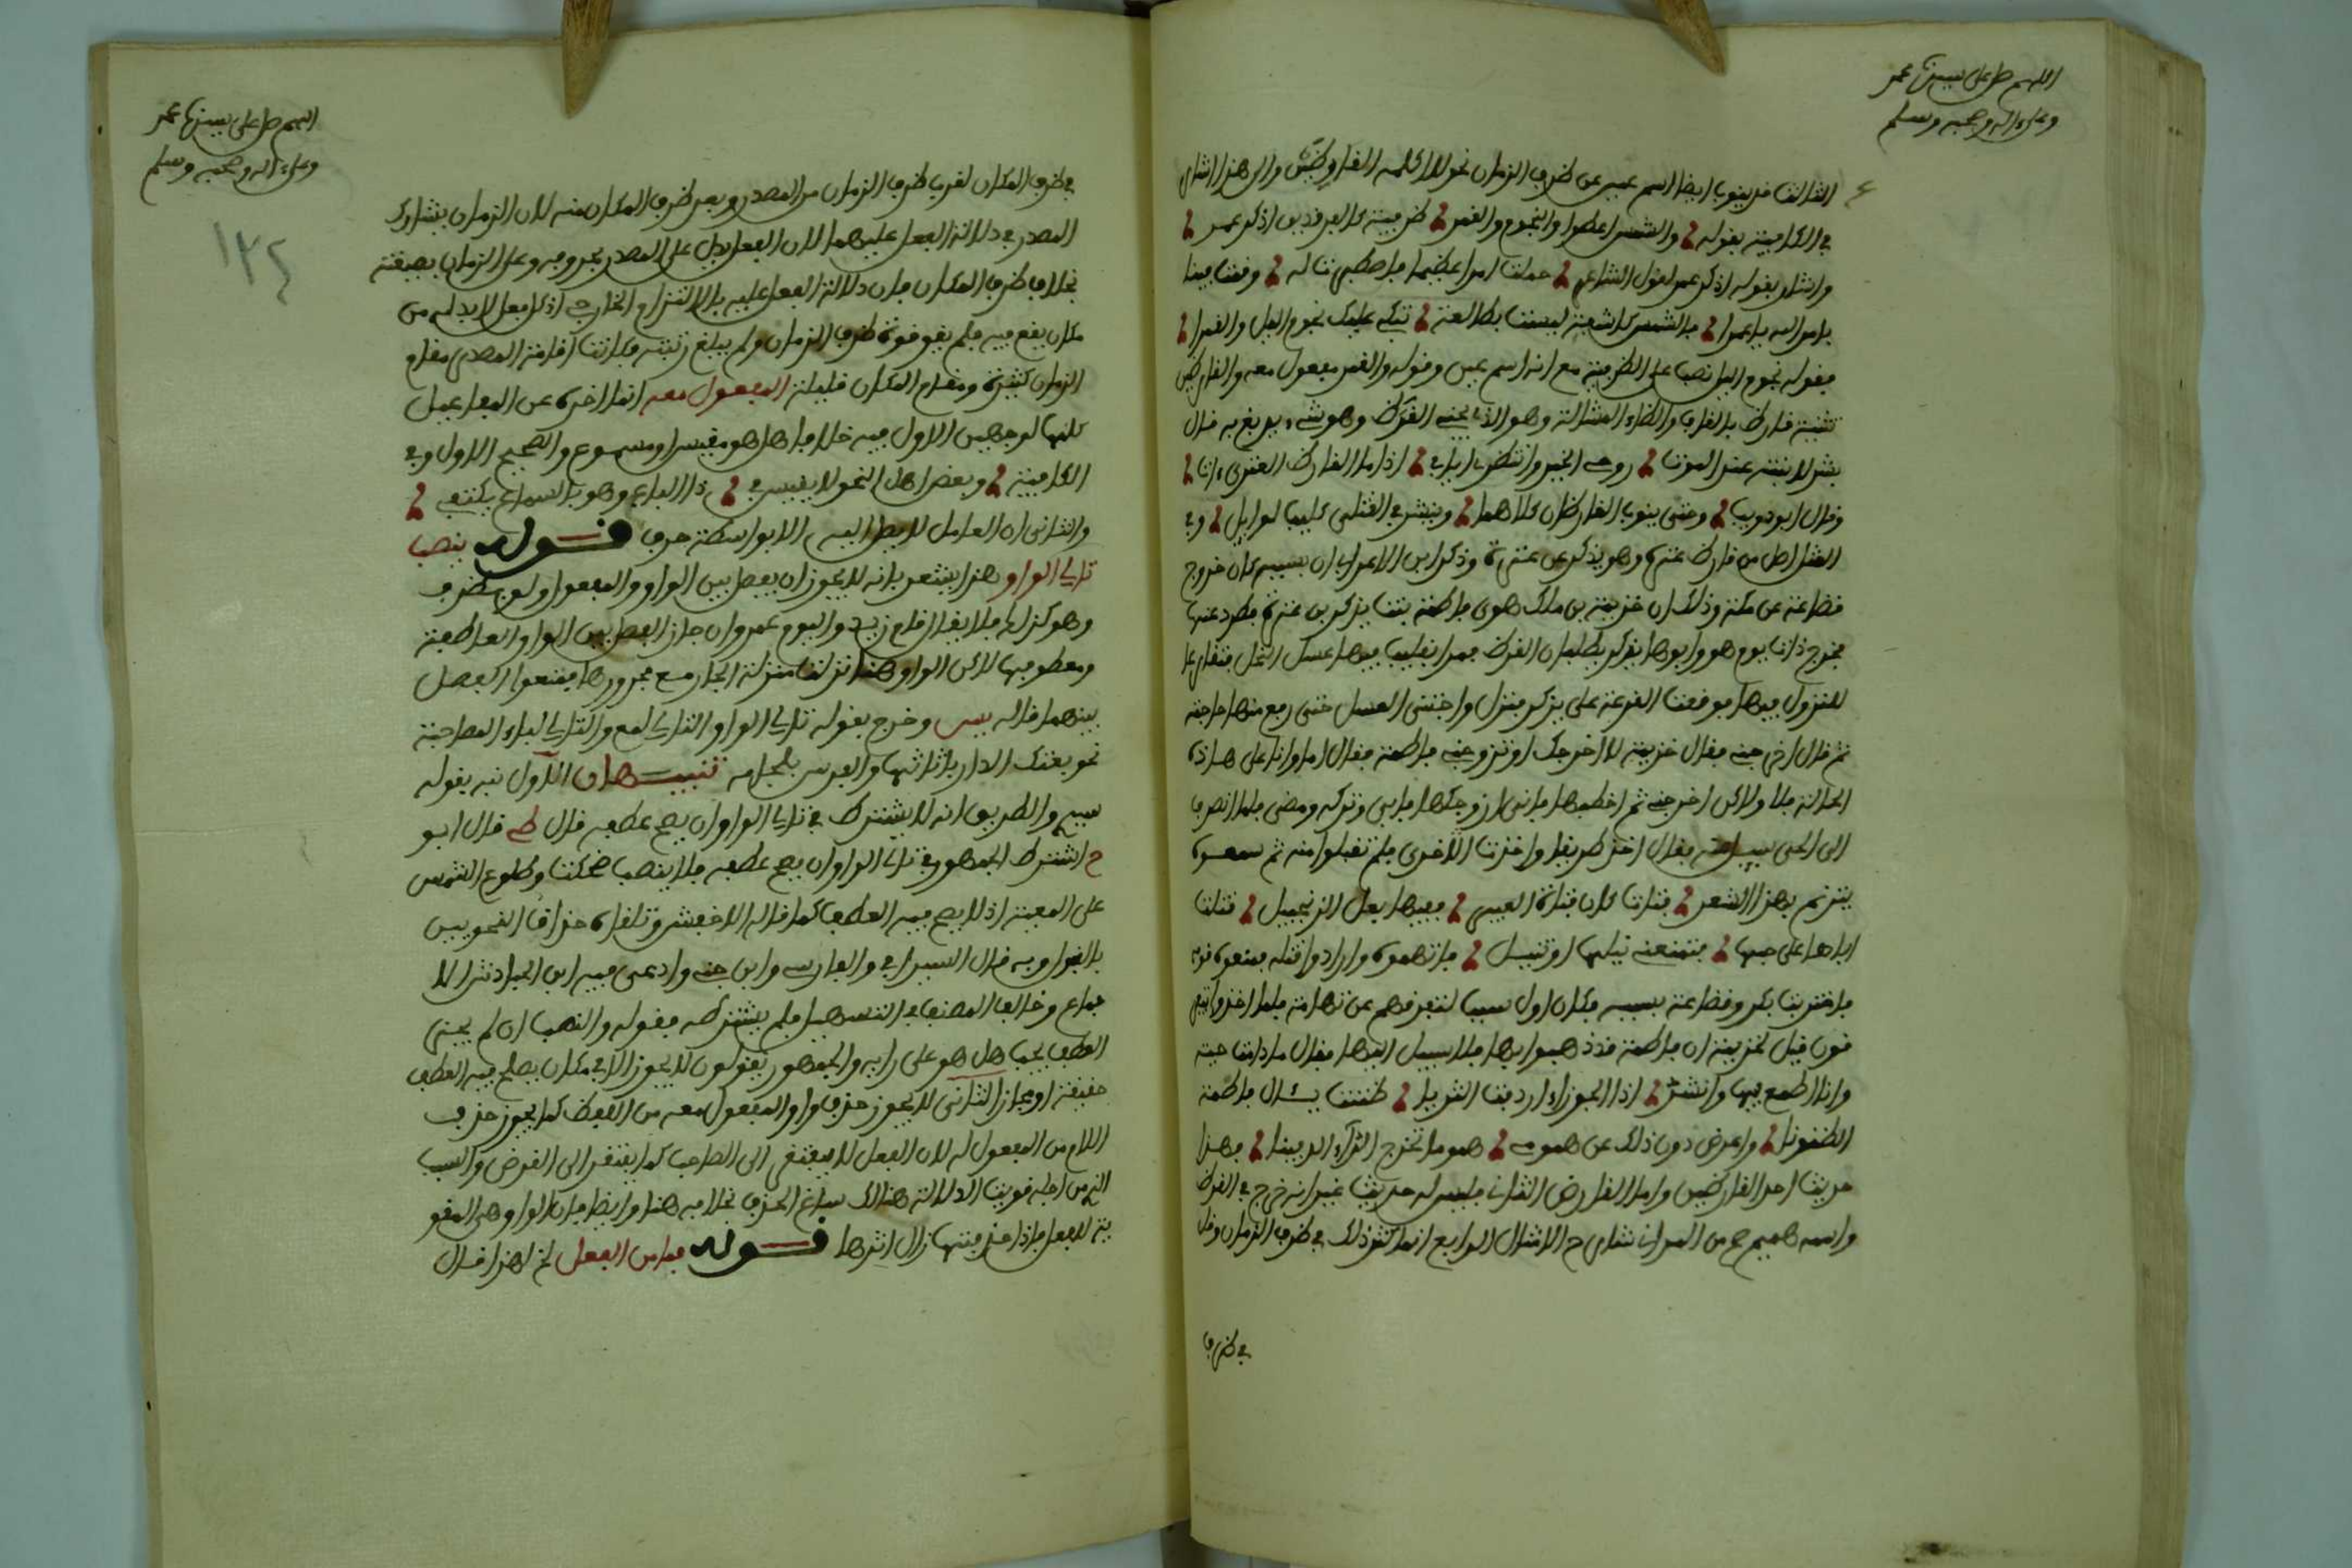 اللهم صل على سيدنا محمد
وعلى ءاله وصحبه وسلم
الثالث قد ينوب ايضا اسم عين عن ظرف الزمان نحو لا اكلمه القارظين والى هذا اشار
في الكافية بقوله والشمس اعطوا والنجوم والقمر ظرفية كالفرقدين اذكر عمر
واشار بقوله اذكر عمر لقول الشاعر حملت امرا عظيما فاصطبرت له وقمت فينا
بامر الله يا عمرا فالشمس كاسفة ليست بطالعة تبكي عليك نجوم الليل والقمرا
فقوله نجوم الليل نصب على الظرفية مع انه اسم عين وقوله والقمر مفعول معه والقارظين
تثنية قارظ بالقاف والظاء المشالة وهو الذي يجني القرظ وهو شيء يدبغ به قال
بشر لابنته عند الموت فرجي الخير وانتظري ايابي اذا ما القارظ العنزي ءابا
وقال ابو ذويب وحتى يئوب القارظان كلاهما وينشر في القتلى كليب لوايل وفي
المثل اضل من قارظ عنزة وهو يذكر بن عنزة وذكر ابن الاعرابي ان بسببه كان خروج
قضاعة من مكة وذلك ان خزيمة بن ملك هوى فاطمة بنت يذكر بن عنزة فطرد عنها
فخرج ذات يوم هو وابوها يذكر يطلبان القرظ فمرا بقليب فيها عسل النحل فتقارعا
للنزول فيها فوقعت القرعة على يذكر فنزل واجتنى العسل حتى رفع منها حاجته
ثم قال اخرجني فقال خزيمة لا اخرجك او تزوجني فاطمة فقال اما وانا على هذه
الحالة فلا ولاكن اخرجني ثم اخطبها فاني ازوجكها فابى وتركه ومضى فلما انصرف
الى الحي سيل عنه فقال اخذ طريقا واخذت الاخرى فلم تقبلوا منه ثم سمعوه
يترنم بهذا الشعر فتاة كان فتاة العبير بفيها يعل الزنجبيل قتلت
اباها على حبها فتمنعني نيلها او تنيل فاتهموه وارادوا قتله فمنعوه قومه
فاحتربت بكر وقضاعة بسببه فكان اول سبب لتفرقهم عن تهامة فلما اخذوا يتفر
قون قيل لخزيمة ان فاطمة قد ذهبوا بها فلا سبيل اليها فقال ما دامت حية
وانا اطمع فيها وانشد اذا الجوزاء اردفت الثريا ظننت بئال فاطمة
الظنونا واعرض دون ذلك من همومي هموما تخرج الداء الدفينا فهذا
حديث احد القارظين واما القارض الثاني فليس له حديث غير انه خرج في القرظ
واسمه هميم ح من الميداني شارح الامثال الرابع انما كثر ذلك في ظرف الزمان وقل
في ظرف
اللهم صل على سيدنا محمد
وعلى ءاله وصحبه وسلم
١٣٤
في ظرف المكان لقرب ظرف الزمان من المصدر وبعد ظرف المكان منه لان الزمان يشارك
المصدر في دلالة الفعل عليهما لان الفعل يدل على المصدر بحروفه وعلى الزمان بصيغته
بخلاف ظرف المكان فان دلالة الفعل عليه بالالتزام الخارجي اذ كل فعل لا بد له من
مكان يقع فيه فلم يقو قوة ظرف الزمان ولم يبلغ رتبته فكانت اقامة المصدر مقام
الزمان كثيرة ومقام المكان قليلة المفعول معه انما اخره عن المفاعيل
كلها لوجهين الاول فيه خلاف هل هو مقيس او مسموع والصحيح الاول وفي
الكافية وبعض اهل النحو لا يقيس في ذا الباب وهو بالسماع يكتفي
والثاني ان العامل لا يصل اليه الا بواسطة حرف قوله ينصب
تالي الواو هذا يشعر بانه لا يجوز ان يفصل بين الواو والمفعول ولو بظرف
وهو كذلك فلا يقال قام زيد واليوم عمرو وان جاز الفصل بين الواو العاطفة
ومعطوفها لاكن الواو هنا نزلت منزلة الجار مع مجرورها فمنعوا الفصل
بينهما قاله يس وخرج بقوله تالي الواو التالي لمع والتالي لباء المصاحبة
نحو بعتك الدار باثاثها والفرس بلجامه تنبيهات الاول نبه بقوله
سيري والطريق انه لا يشترط في تالي الواو ان يصح عطفه قال طي قال ابو
ح اشترط الجمهور في تالي الواو ان يصح عطفه فلا ينصب ضحكت وطلوع الشمس
على المعية اذ لا يصح فيه العطف كما قاله الاخفش وتلقاه حذاق النحويين
بالقبول وبه قال السيرافي والفارسي وابن جني وادعى فيه ابن الباذش الا
جماع وخالف المصنف في التسهيل فلم يشترطه فقوله والنصب ان لم يجز
العطف يجب هل هو على رايه والجمهور يقولون لا يجوز الا في مكان يصلح فيه العطف
حقيقة او مجازا الثاني لا يجوز حذف واو المفعول معه من اللفظ كما يجوز حذف
اللام من المفعول له لان الفعل لا يقتضي الى الصاحب كما يفتقر الى الغرض والسبب
الذي من اجله قويت الدلالة هنالك ساغ الحذف بخلافه هنا وايضا فان الواو هي المقو
ية للفعل فاذا حذفتها زال اثرها قوله بما من الفعل الخ لهذا قال